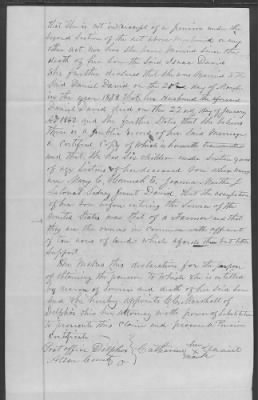 that She is not in receipt of a pension under the
Second Section of the Act above mentioned or any
other nor has She been Married Since the
death of her Son the Said Isaac Daniel
She further declares that She was Married to the
Said Daniel David on the 20th day of March
in the year 1838 that her Husband the aforesaid
Daniel David died on the 22nd day of January
AD 1862 and She further States that She believes
There is a public record of her Said Marriage
a Certified Copy of Which is herewith transmitted
and that She has Six children under Sixteen years
of age
Mary C.
Colonal Sidney Grant David that the occupation
of her Son before entering the Service of the
United States was that of a Farmer and that
they are the owners in common with
of ten acres of land which affords them but little
Support
She Makes this declaration for the purpose
of obtaining the pension to Which She is entitled
by reason of Service and death of her Said Son
and She hereby appoints C.C. Marshall of
Delphos Ohio her Attorney with power of Substitution
to prosecute this claim and procure Pension
Certificate
Post office Delphos Catharine her
Allen County O mark